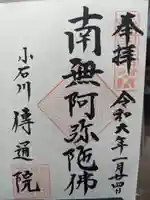 奉拝
令和六年一月四日
南無阿弥陀佛
小石川
傳通院